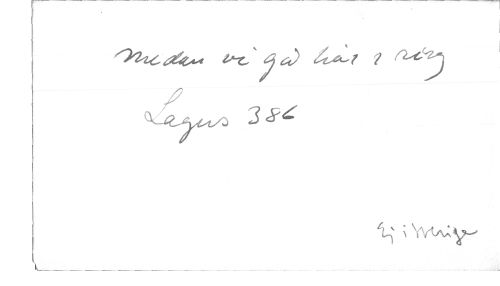 medan vi gå här i ring
Lagus 386
Ej i Sverige